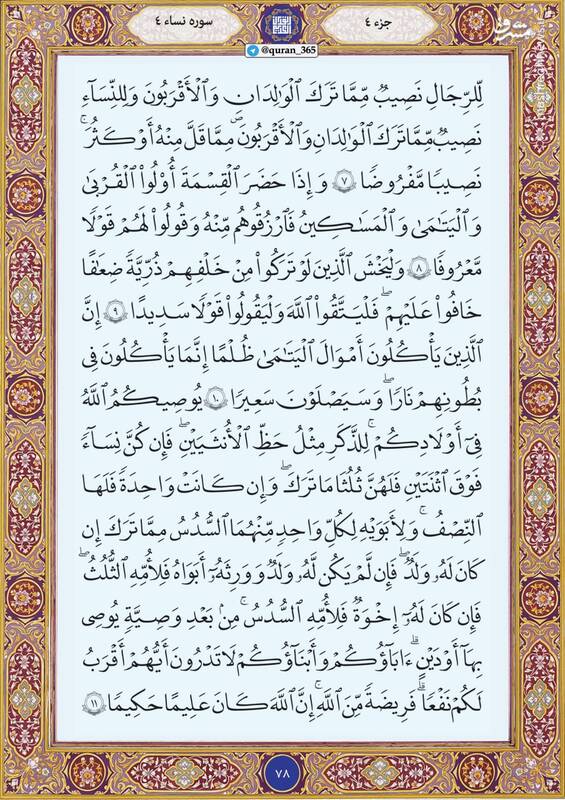 جزء ٤
سوره نساء ٤
مشرق
@quran_365
لِّلرِّجَالِ نَصِيبٌ مِّمَّا تَرَكَ الْوَالِدَانِ وَالْأَقْرَبُونَ وَلِلنِّسَاءِ
نَصِيبٌ مِّمَّا تَرَكَ الْوَالِدَانِ وَالْأَقْرَبُونَ مِمَّا قَلَّ مِنْهُ أَوْ كَثُرَ ۚ
نَصِيبًا مَّفْرُوضًا ٧ وَإِذَا حَضَرَ الْقِسْمَةَ أُولُوا الْقُرْبَىٰ
وَالْيَتَامَىٰ وَالْمَسَاكِينُ فَارْزُقُوهُم مِّنْهُ وَقُولُوا لَهُمْ قَوْلًا
مَّعْرُوفًا ٨ وَلْيَخْشَ الَّذِينَ لَوْ تَرَكُوا مِنْ خَلْفِهِمْ ذُرِّيَّةً ضِعَافًا
خَافُوا عَلَيْهِمْ فَلْيَتَّقُوا اللَّهَ وَلْيَقُولُوا قَوْلًا سَدِيدًا ٩ إِنَّ
الَّذِينَ يَأْكُلُونَ أَمْوَالَ الْيَتَامَىٰ ظُلْمًا إِنَّمَا يَأْكُلُونَ فِي
بُطُونِهِمْ نَارًا ۖ وَسَيَصْلَوْنَ سَعِيرًا ١٠ يُوصِيكُمُ اللَّهُ
فِي أَوْلَادِكُمْ ۖ لِلذَّكَرِ مِثْلُ حَظِّ الْأُنثَيَيْنِ ۚ فَإِن كُنَّ نِسَاءً
فَوْقَ اثْنَتَيْنِ فَلَهُنَّ ثُلُثَا مَا تَرَكَ ۖ وَإِن كَانَتْ وَاحِدَةً فَلَهَا
النِّصْفُ ۚ وَلِأَبَوَيْهِ لِكُلِّ وَاحِدٍ مِّنْهُمَا السُّدُسُ مِمَّا تَرَكَ إِن
كَانَ لَهُ وَلَدٌ ۚ فَإِن لَّمْ يَكُن لَّهُ وَلَدٌ وَوَرِثَهُ أَبَوَاهُ فَلِأُمِّهِ الثُّلُثُ ۚ
فَإِن كَانَ لَهُ إِخْوَةٌ فَلِأُمِّهِ السُّدُسُ ۚ مِن بَعْدِ وَصِيَّةٍ يُوصِي
بِهَا أَوْ دَيْنٍ ۗ ءَابَاؤُكُمْ وَأَبْنَاؤُكُمْ لَا تَدْرُونَ أَيُّهُمْ أَقْرَبُ
لَكُمْ نَفْعًا ۚ فَرِيضَةً مِّنَ اللَّهِ ۗ إِنَّ اللَّهَ كَانَ عَلِيمًا حَكِيمًا ١١
٧٨